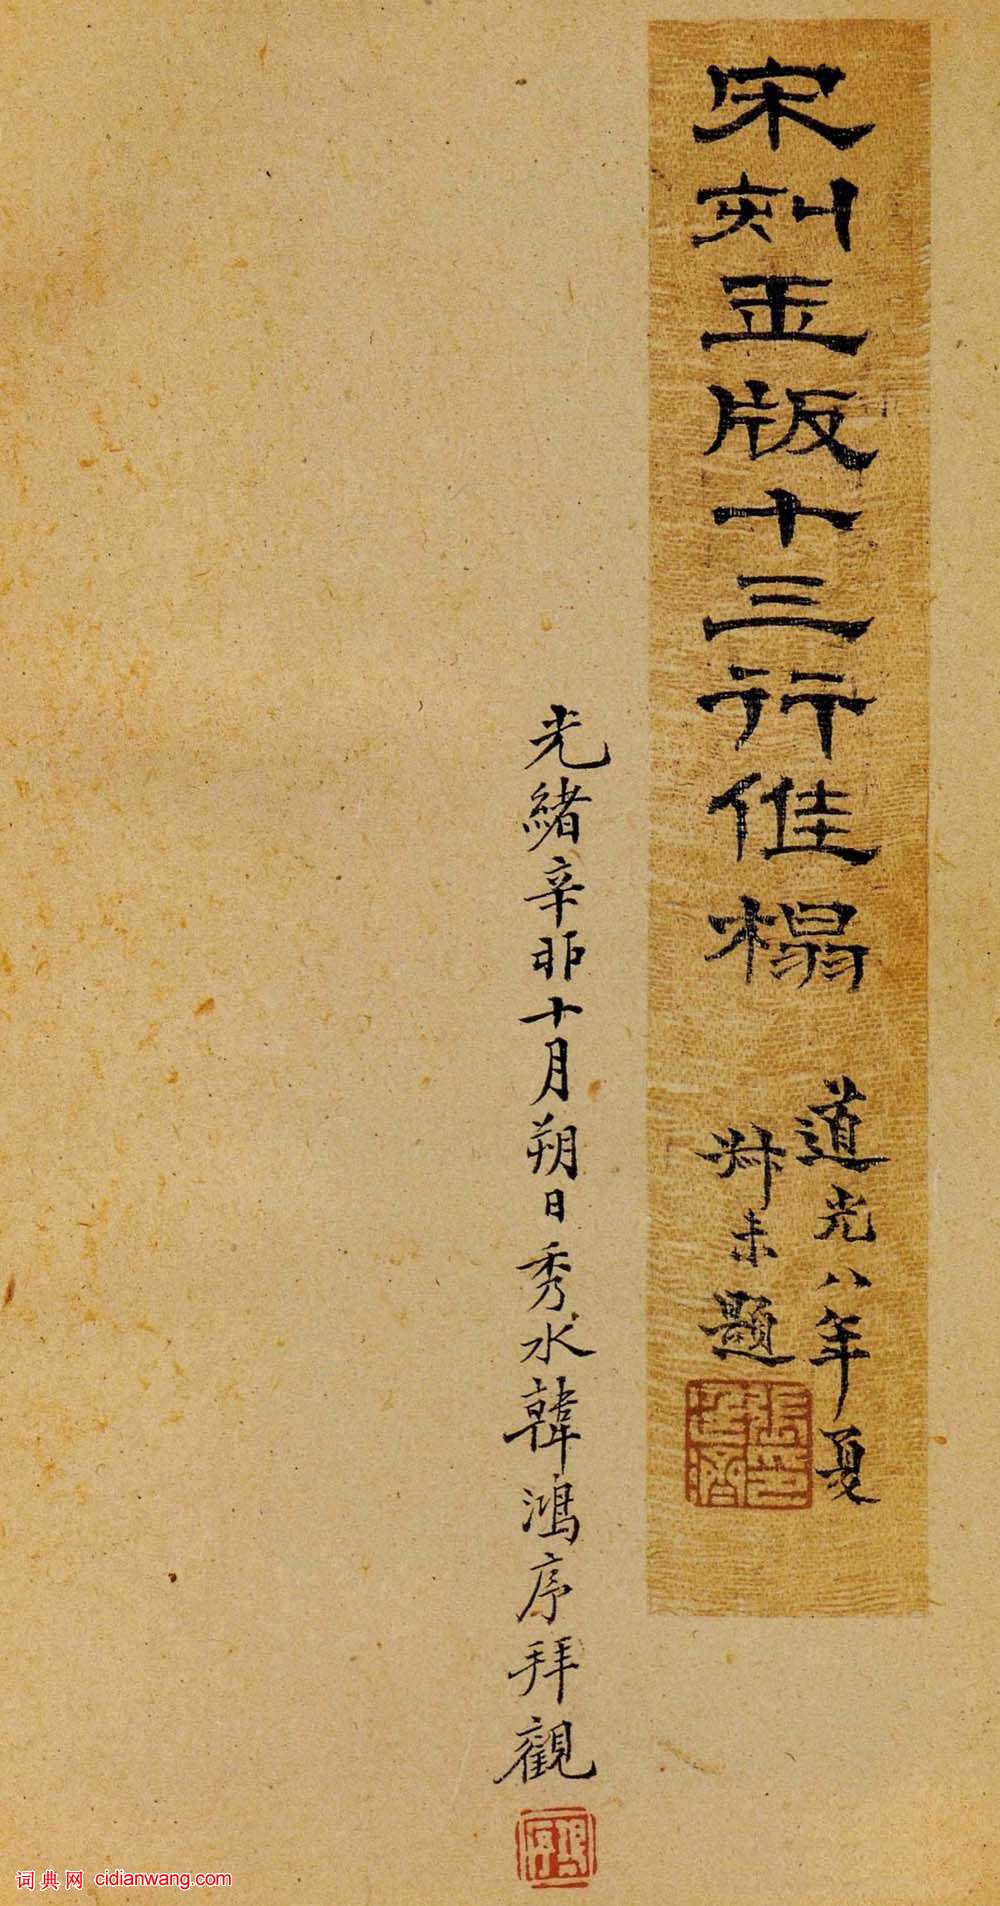 宋刻玉版十三行佳榻
道光八年夏
叔未題
張廷濟印
光緒辛卯十月朔日秀水韓鴻序拜觀
鴻序
词典网 cidianwang.com